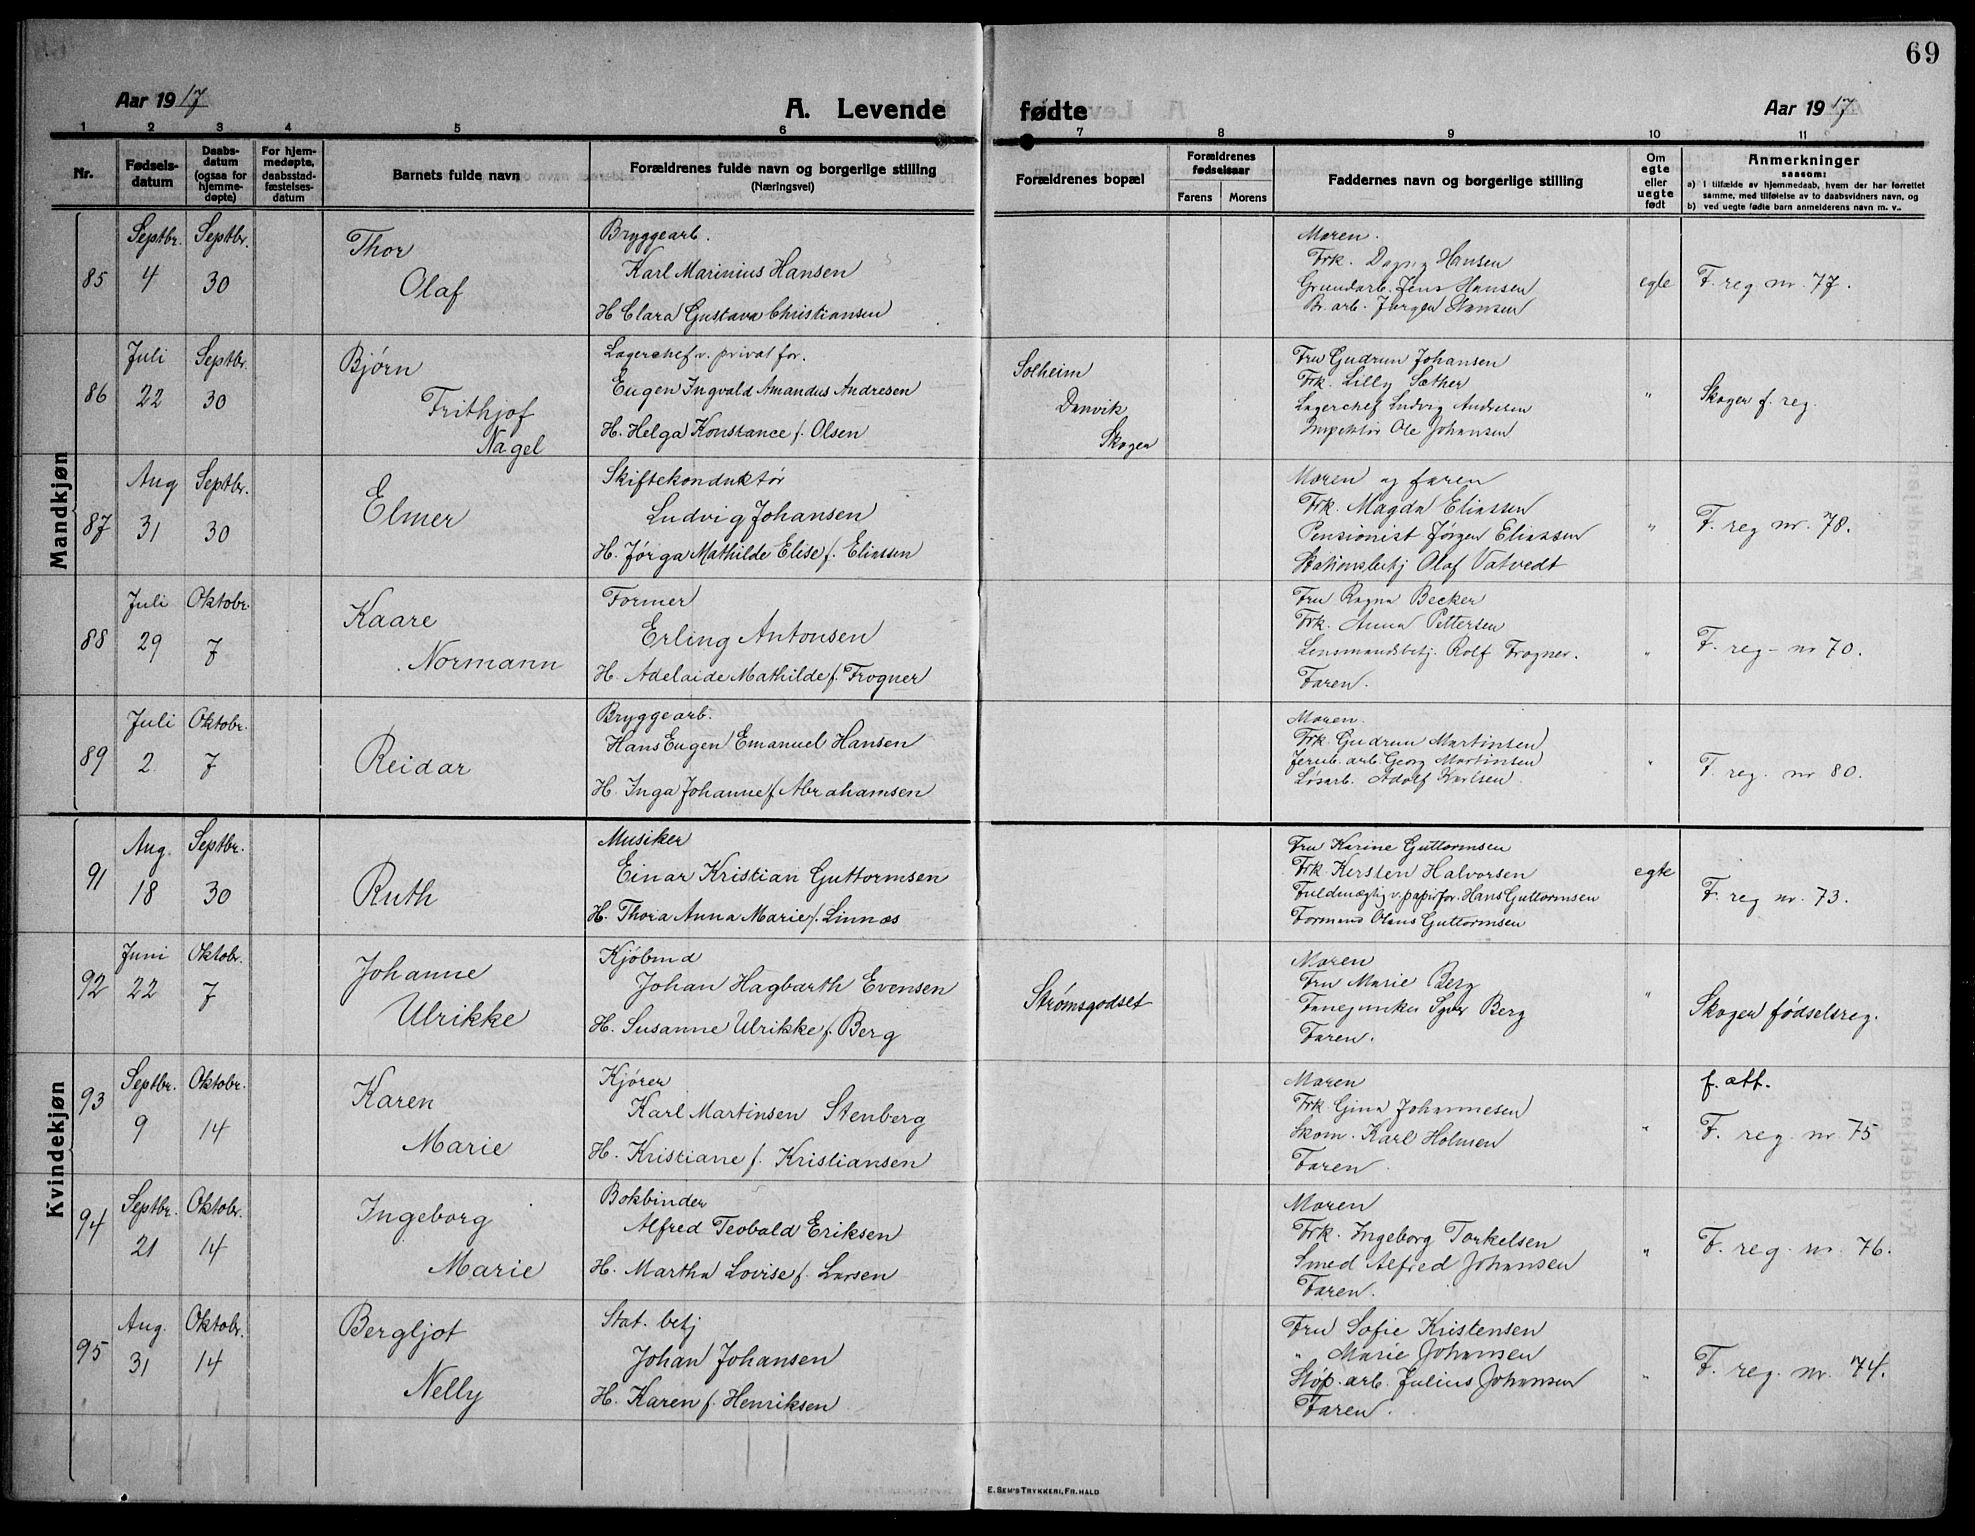 69
Aar 1917 A. Levende fødte Aar 1917
1 2 3 4 5 6 7 8 9 10 11
Nr.
Fødselsdatum
Daabsdatum (ogsaa for hjemmedøpte)
For hjemmedøpte, daabsstadfæstelsesdatum
Barnets fulde navn
Forældrenes fulde navn og borgerlige stilling
(Næringsvei)
Forældrenes bopæl
Forældrenes fødselsaar
Farens Morens
Faddernes navn og borgerlige stilling
Om egte eller uegte født
Anmerkninger
saasom:
a) I tilfælde av hjemmedaab, hvem der har forrettet
samme, med tilføielse av to daabsvidners navn, og
b) ved uegte fødte barn anmelderens navn m. v..
Mandkjøn
85
Septbr. 4
Septbr. 30
Thor
Olaf
Bryggearb.
Karl Marinius Hansen
H. Clara Gustava Christiansen
Moren.
Frk. Dagny Hansen
Grundarb. Jens Hansen
Br. arb. Jørgen Hansen
egte
F. reg nr. 77.
86
Juli 22
Septbr. 30
Bjørn
Frithjof
Nagel
Lagerchef v. privat for.
Eugen Ingvald Amandus Andresen
H. Helga Konstance f. Olsen
Solheim
Danvik
Skoger
Fru Gudrun Johansen
Frk. Lilly Sæther
Lagerchef Ludvig Andresen
Inspektør Ole Johansen
"
Skoger f. reg.
87
Aug 31
Septbr. 30
Elmer
Skiftekonduktør
Ludvig Johansen
H. Jørga Mathilde Elise f. Eliassen
Moren og faren
Frk. Magda Eliassen
Pensionist Jørgen Eliassen
Stationsbetj Olaf Vatvedt
"
F. reg nr. 78.
88
Juli 29
Oktobr. 7
Kaare
Normann
Former
Erling Antonsen
H. Adelaide Mathilde f. Frogner
Fru Ragna Becker
Frk. Anna Pettersen
Lensmandsbetj. Rolf Frogner.
Faren.
"
F. reg - nr 70.
89
Juli 2.
Oktobr. 7
Reidar
Bryggearb.
Hans Eugen Emanuel Hansen
H. Inga Johanne f. Abrahamsen
Moren.
Frk. Gudrun Martinsen
Jernb. arb. Georg Martinsen
Løsarb. Adolf Karlsen
"
F. reg. nr 80.
Kvindekjøn
91
Aug. 18
Septbr. 30
Ruth
Musiker
Einar Kristian Guttormsen
H. Thora Anna Marie f. Linnæs
Fru Karine Guttormsen
Frk. Kersten Halvorsen
Fuldmægtig v. papirfor. Hans Guttormsen
Formand Olaus Guttormsen
egte
F. reg nr. 73.
92
Juni 22
Oktobr. 7
Johanne
Ulrikke
Kjøbmd
Johan Hagbarth Evensen
H. Susanne Ulrikke f. Berg
Strømsgodset
Moren
Fru Marie Berg
Fanejunker Berg
Faren.
"
Skoger fødselsreg.
93
Septbr. 9
Oktobr. 14
Karen
Marie
Kjører
Karl Martinsen Stenberg
H. Kristiane f. Kristiansen
Moren
Frk Gina Johannesen
Skom. Karl Holmen
Faren.
"
f. att.
F. reg. nr. 75
94
Septbr. 21
Oktobr. 14
Ingeborg
Marie
Bokbinder
Alfred Teobald Eriksen
H. Martha Lovise f. Larsen
Moren
Frk. Ingeborg Torkelsen
Smed Alfred Johansen
Faren.
"
F. reg. nr. 76.
95
Aug. 31
Oktobr. 14
Bergljot
Nelly
Stat. betj
Johan Johansen
H. Karen f. Henriksen
Fru Sofie Kristensen
" Marie Johansen
Støp. arb. Julius Johansen
Faren.
"
F. reg. nr. 74.
E. SEM'S TRYKKERI, FR. HALD